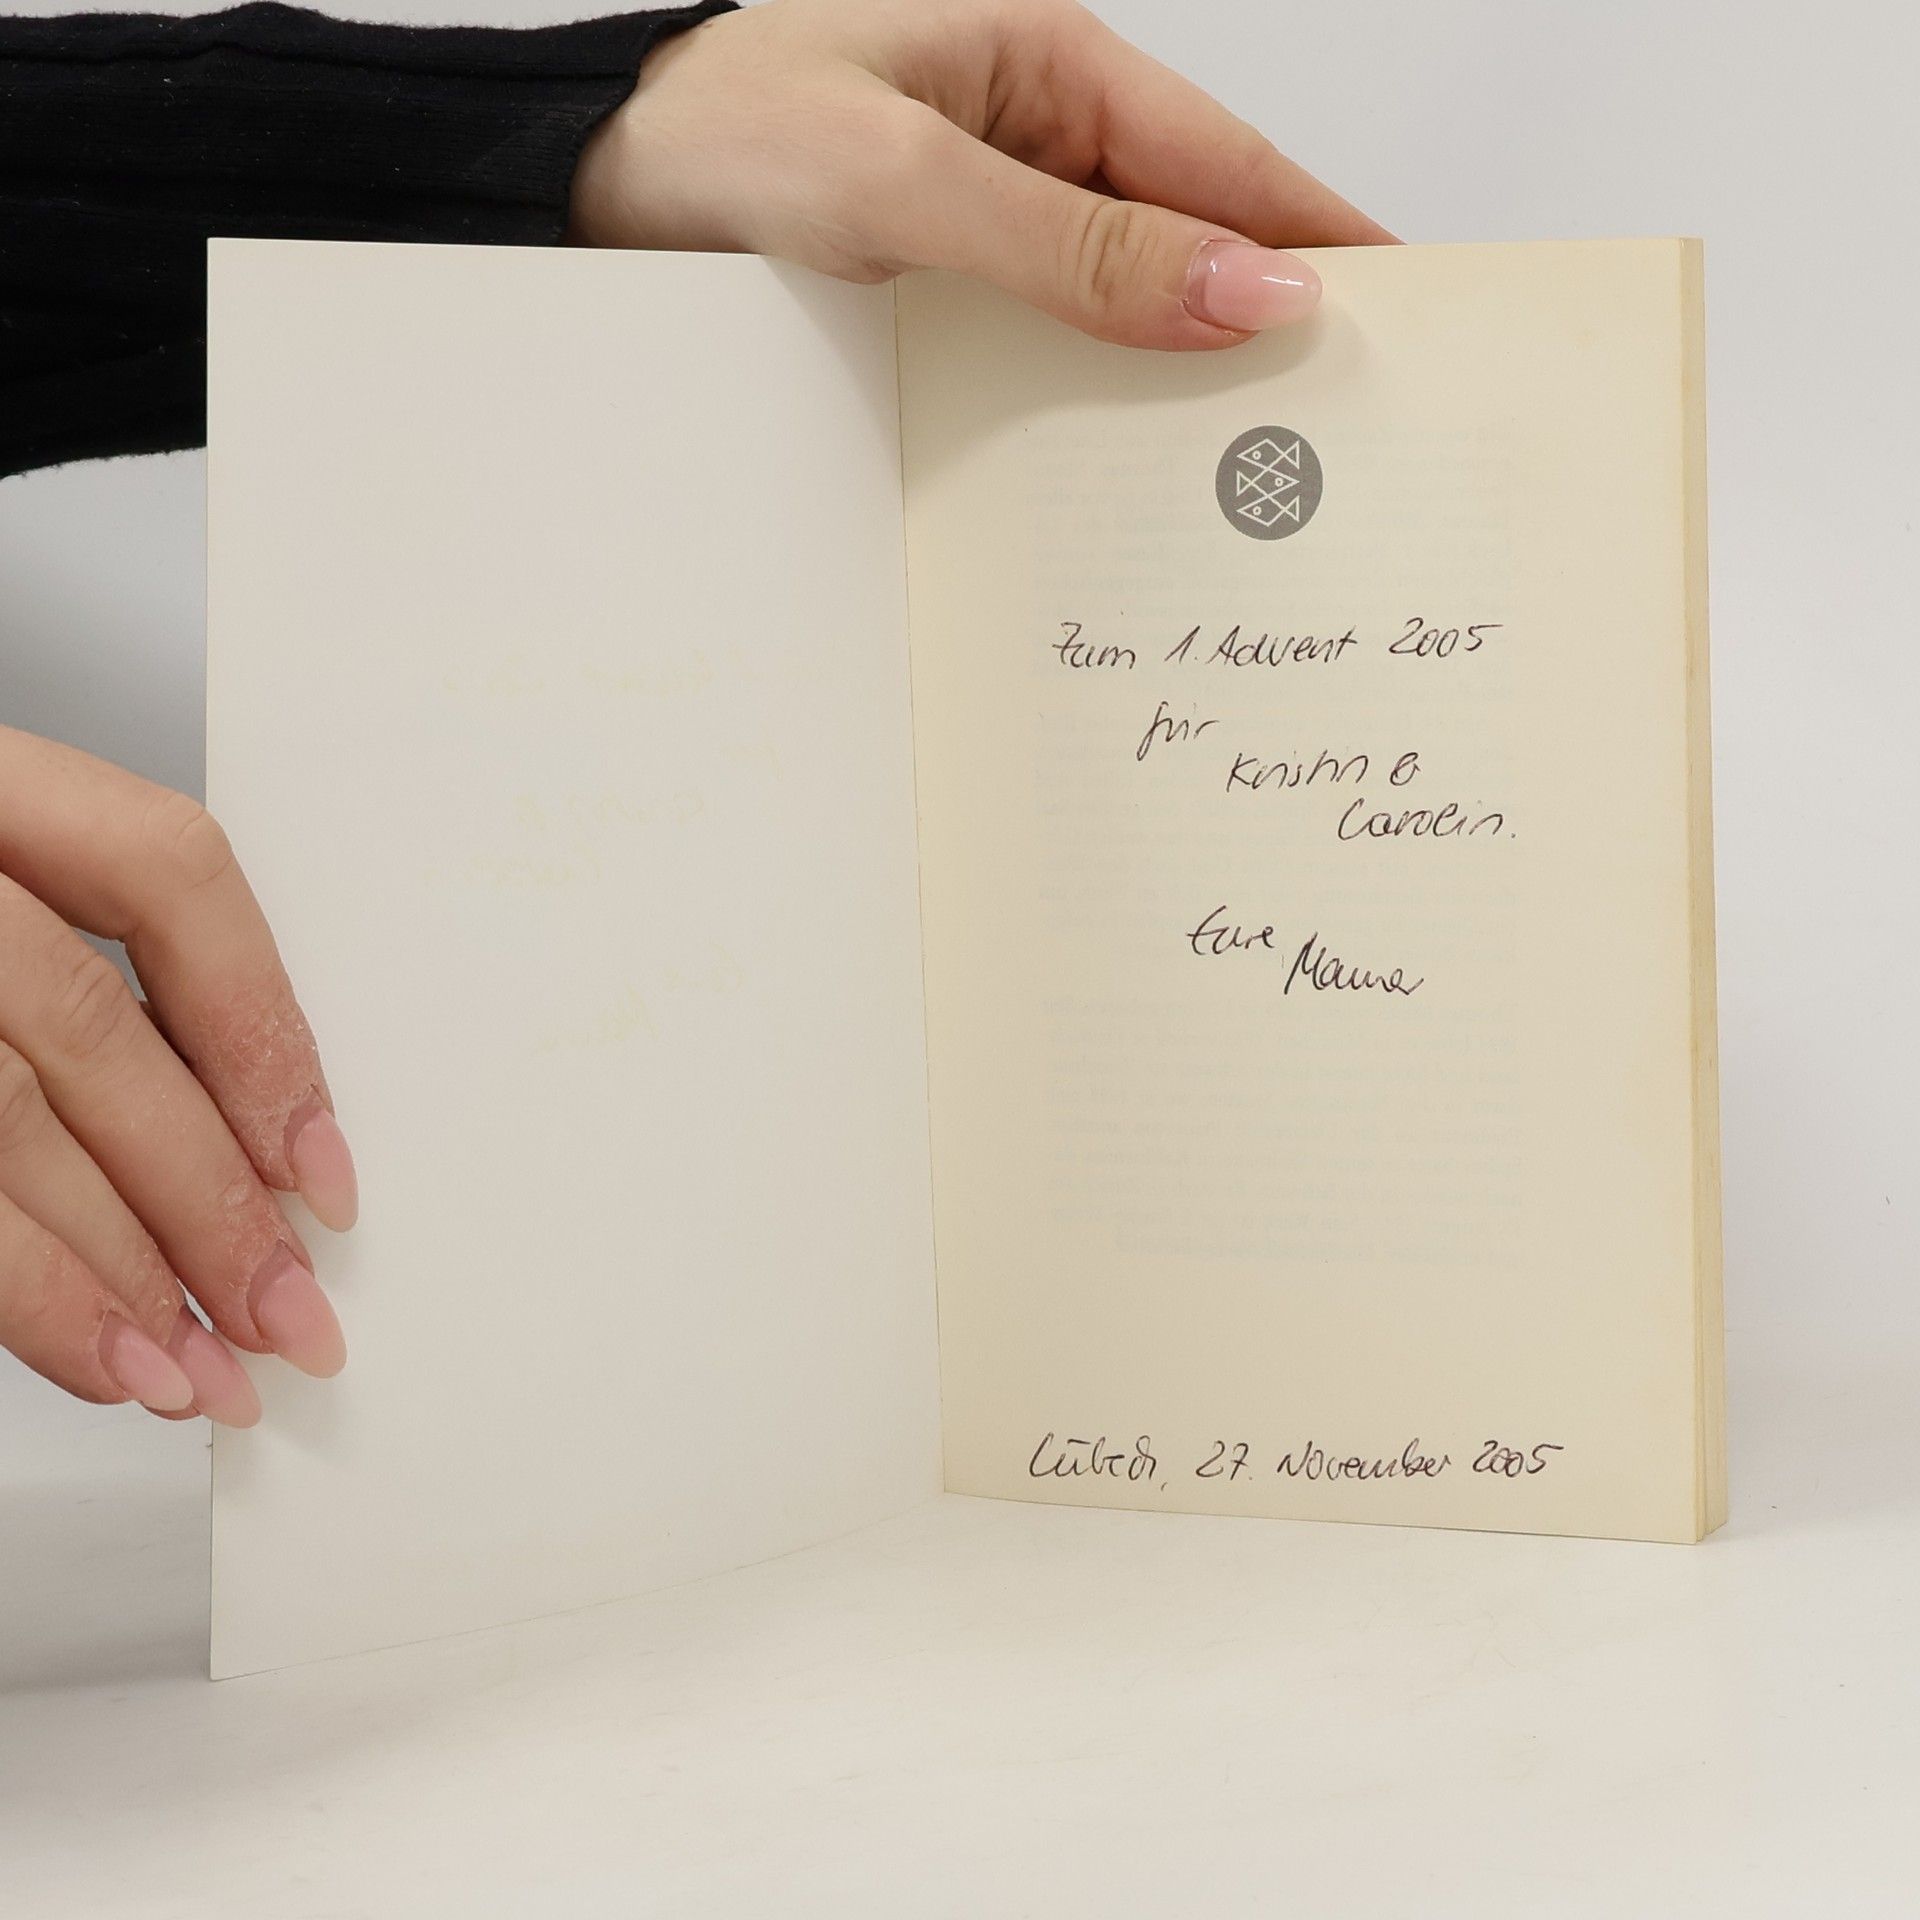 Zum 1. Advent 2005
für
Kristin &
Carolin.
Eure
Mama
Lübeck, 27. November 2005